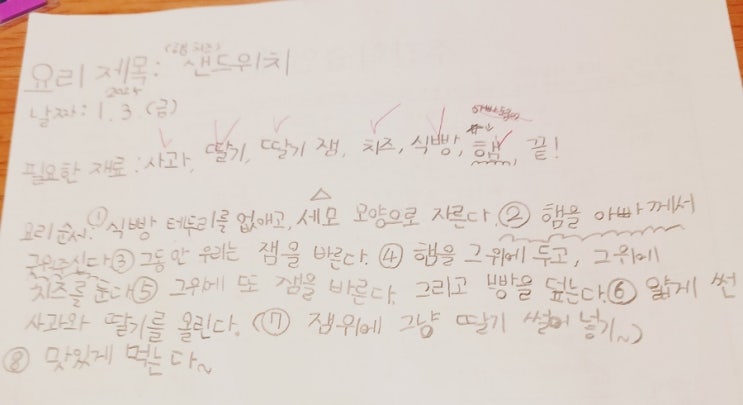 (햄 치즈)
요리 제목: 샌드위치
2024
날짜: 1. 3. (금)
필요한 재료: 사과, 딸기, 딸기 잼, 치즈, 식빵, 햄, 끝!
요리순서: ① 식빵 테두리를 없애고, 세모 모양으로 자른다. ② 햄을 아빠께서
구워주신다. ③ 그동안 우리는 잼을 바른다. ④ 햄을 그 위에 두고, 그위에
치즈를 둔다 ⑤ 그위에 또 잼을 바른다. 그리고 빵을 덮는다. ⑥ 얇게 썬
사과와 딸기를 올린다. (⑦ 잼위에 그냥 딸기 썰어 넣기~)
⑧ 맛있게 먹는다~